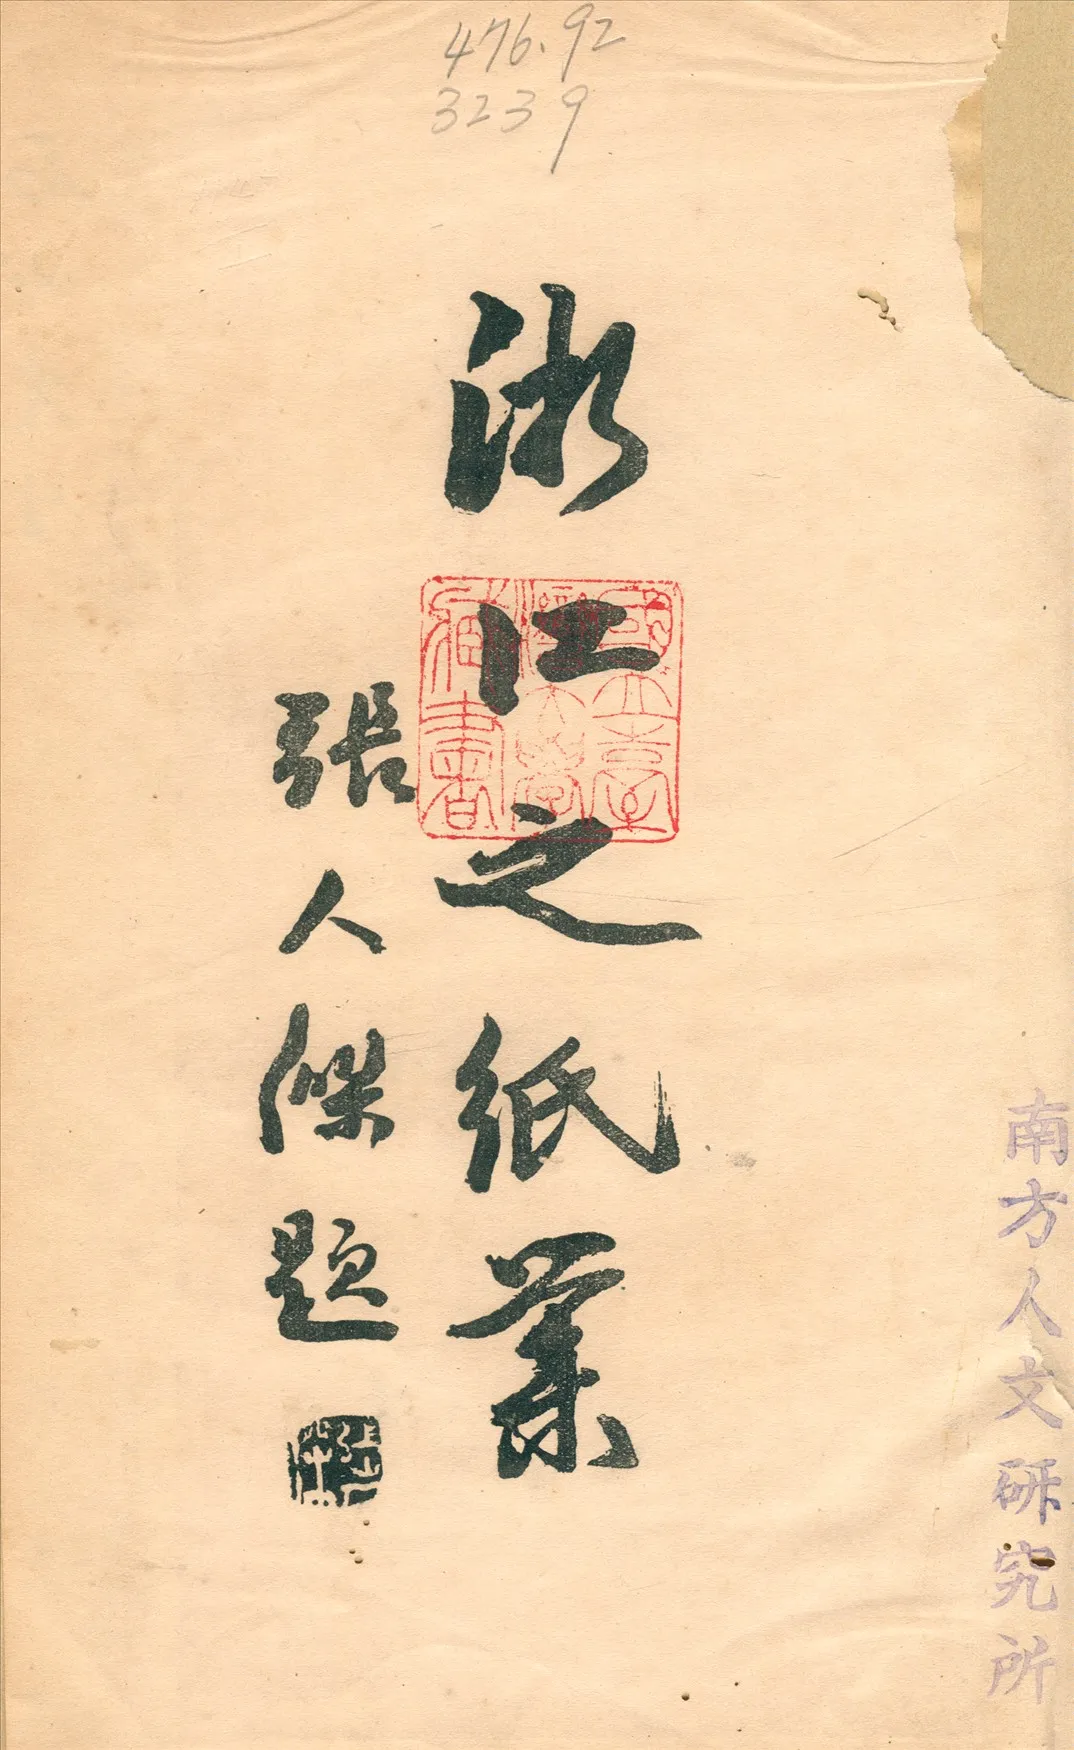 476.92
3239
浙江之紙業
張人傑題
南方人文研究所